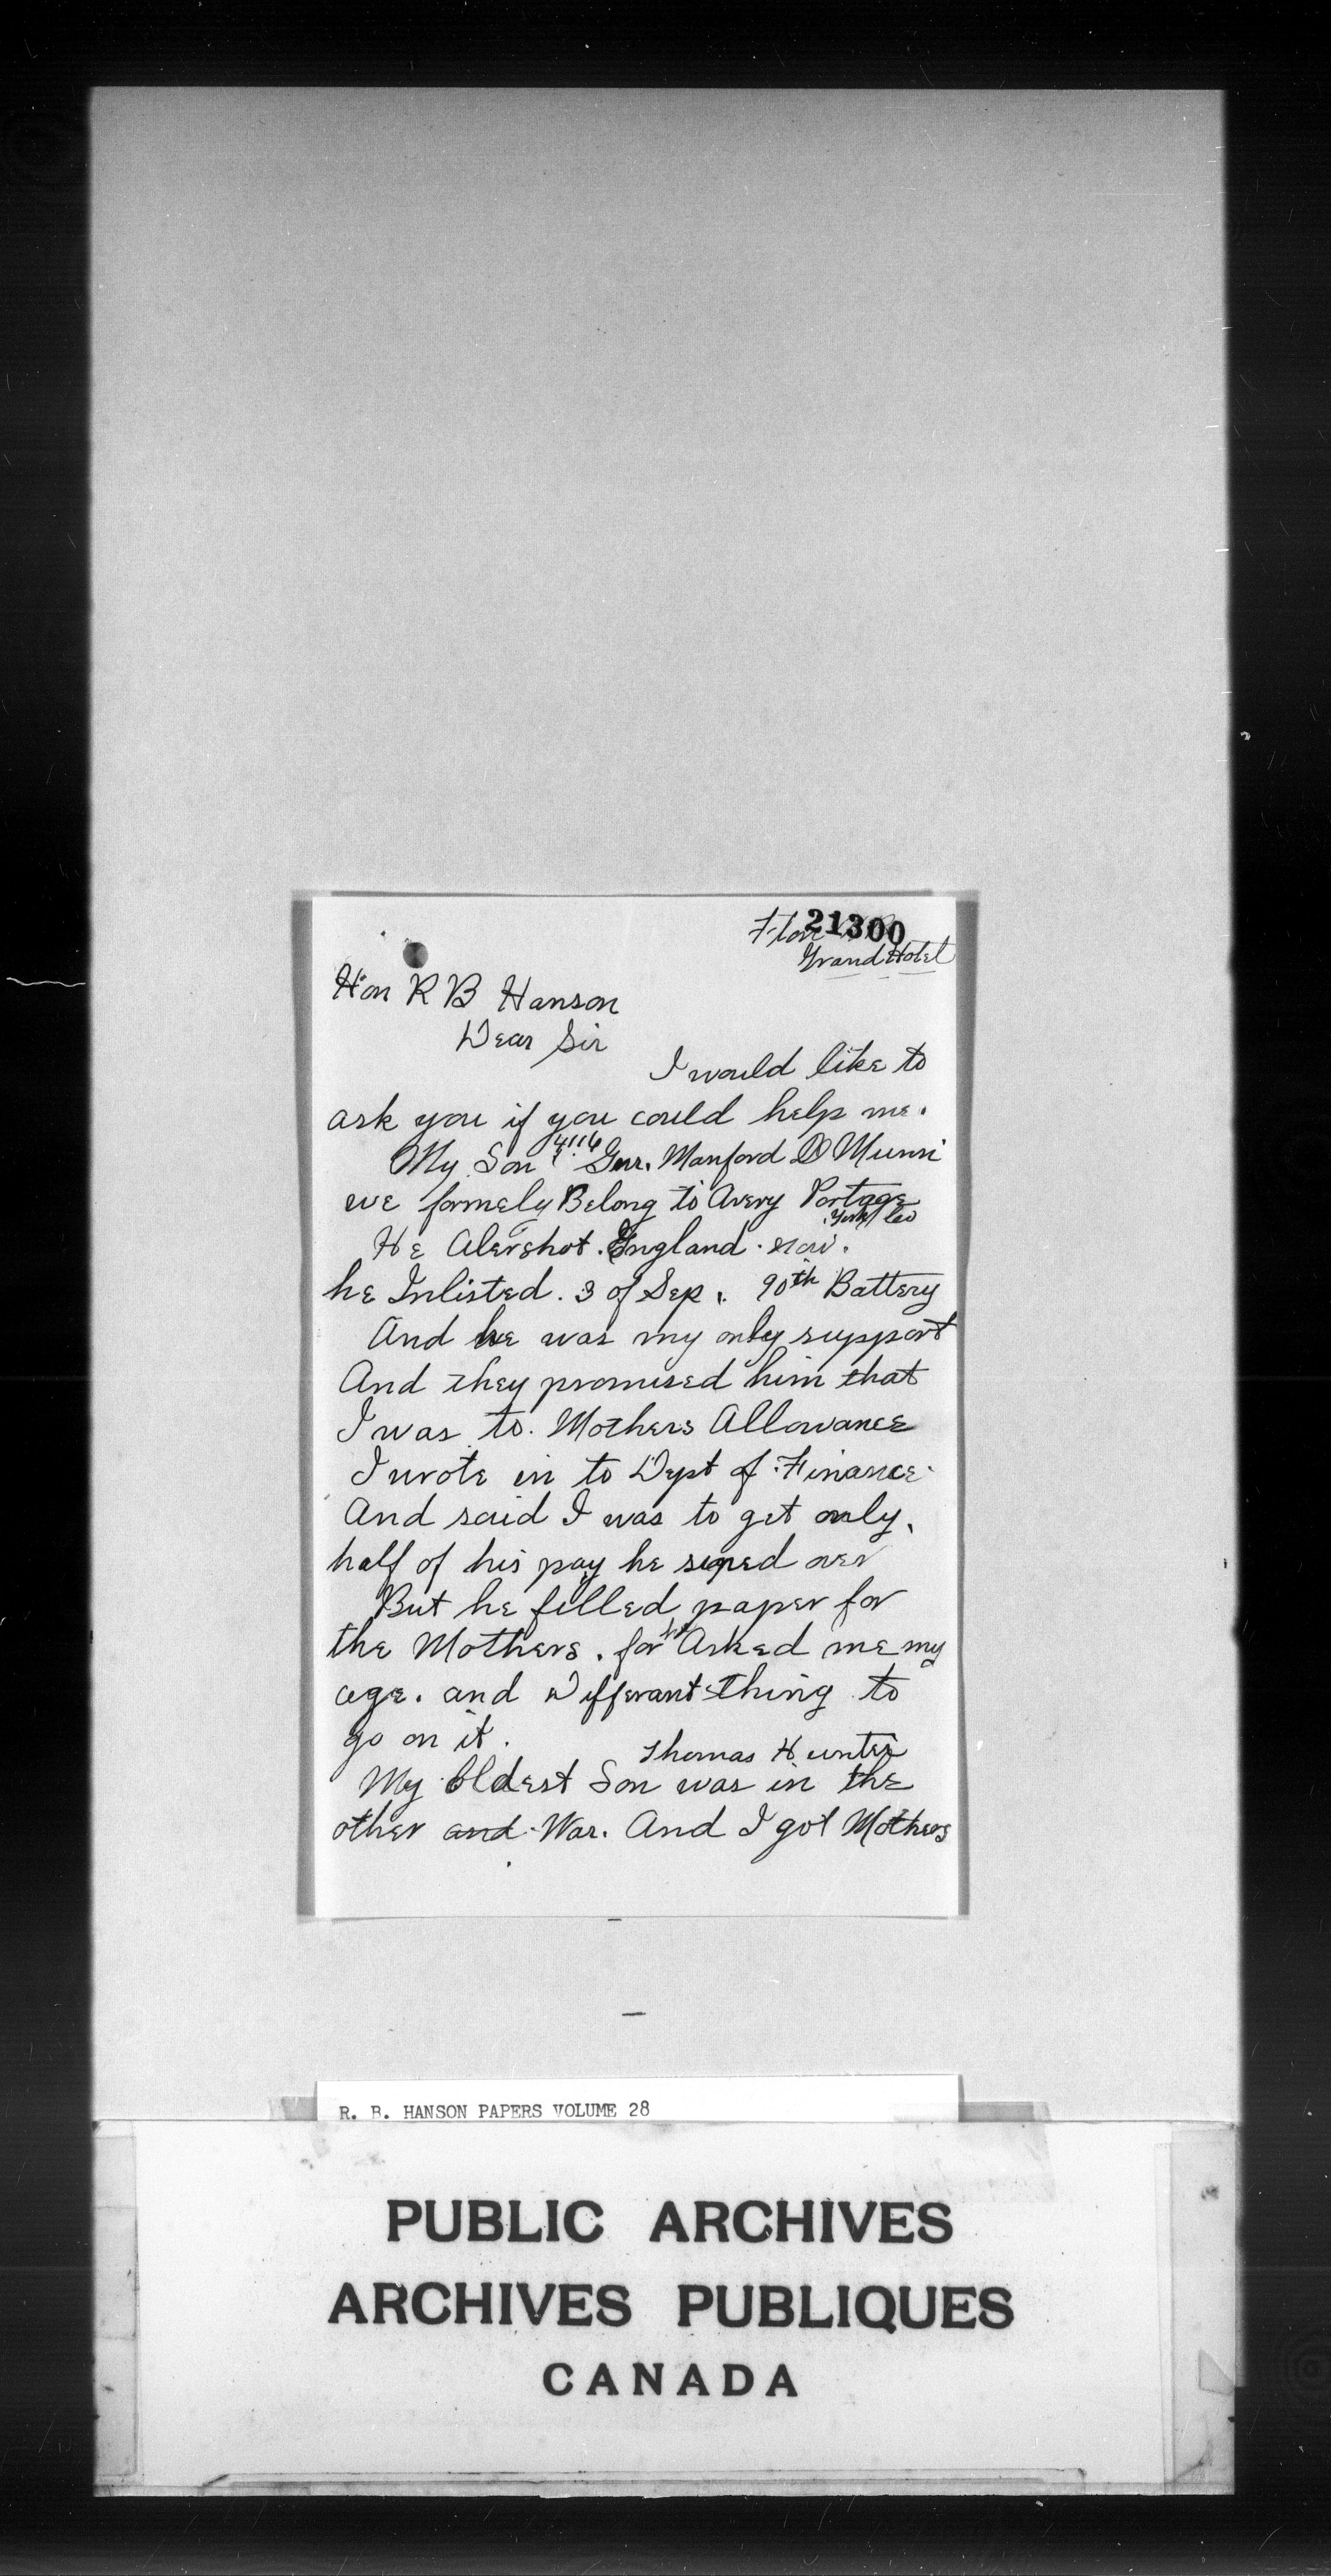 21300
Grand Hotel
Hon R B Hanson
Dear Sir
I would like to
ask you if you could help me.
4116
My Son Gnr. Manford D Munn
we formely Belong to Avery Portage
York Co
HE Alershot. England. now.
he Inlisted. 3 of Sep. 90th Battery
And he was my only support
And they promised him that
I was to. Mothers Allowance
I wrote in to Dept of Finance
And said I was to get only,
half of his pay he signed over
But he filled paper for
the Mothers. for Asked me my
age. and Differant thing to
go on it.
Thomas Hunter
My Oldest Son was in the
other and War. And I got Mothers
R. B. HANSON PAPERS VOLUME 28
PUBLIC ARCHIVES
ARCHIVES PUBLIQUES
CANADA